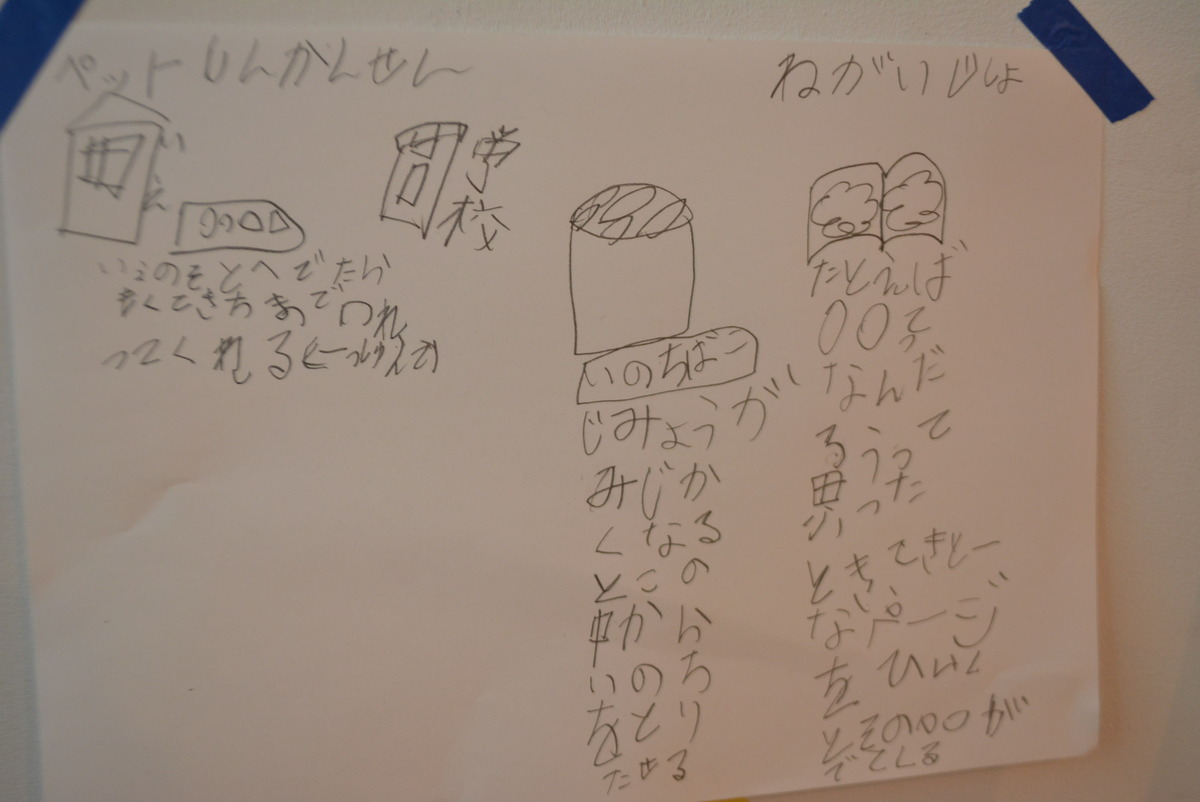 ペットしんかんせん
いえ
学校
いえのそとへでたら
歩くてきちまでつれ
ってくれる
いのちばこ
じみょうが
みじか
くなる
とこの
中から
いのち
をとり
だせる
ねがいじしょ
たとえば
〇〇って
なんだ
ろうって
思った
ときてきとー
なページ
をひらく
とその〇〇が
でてくる